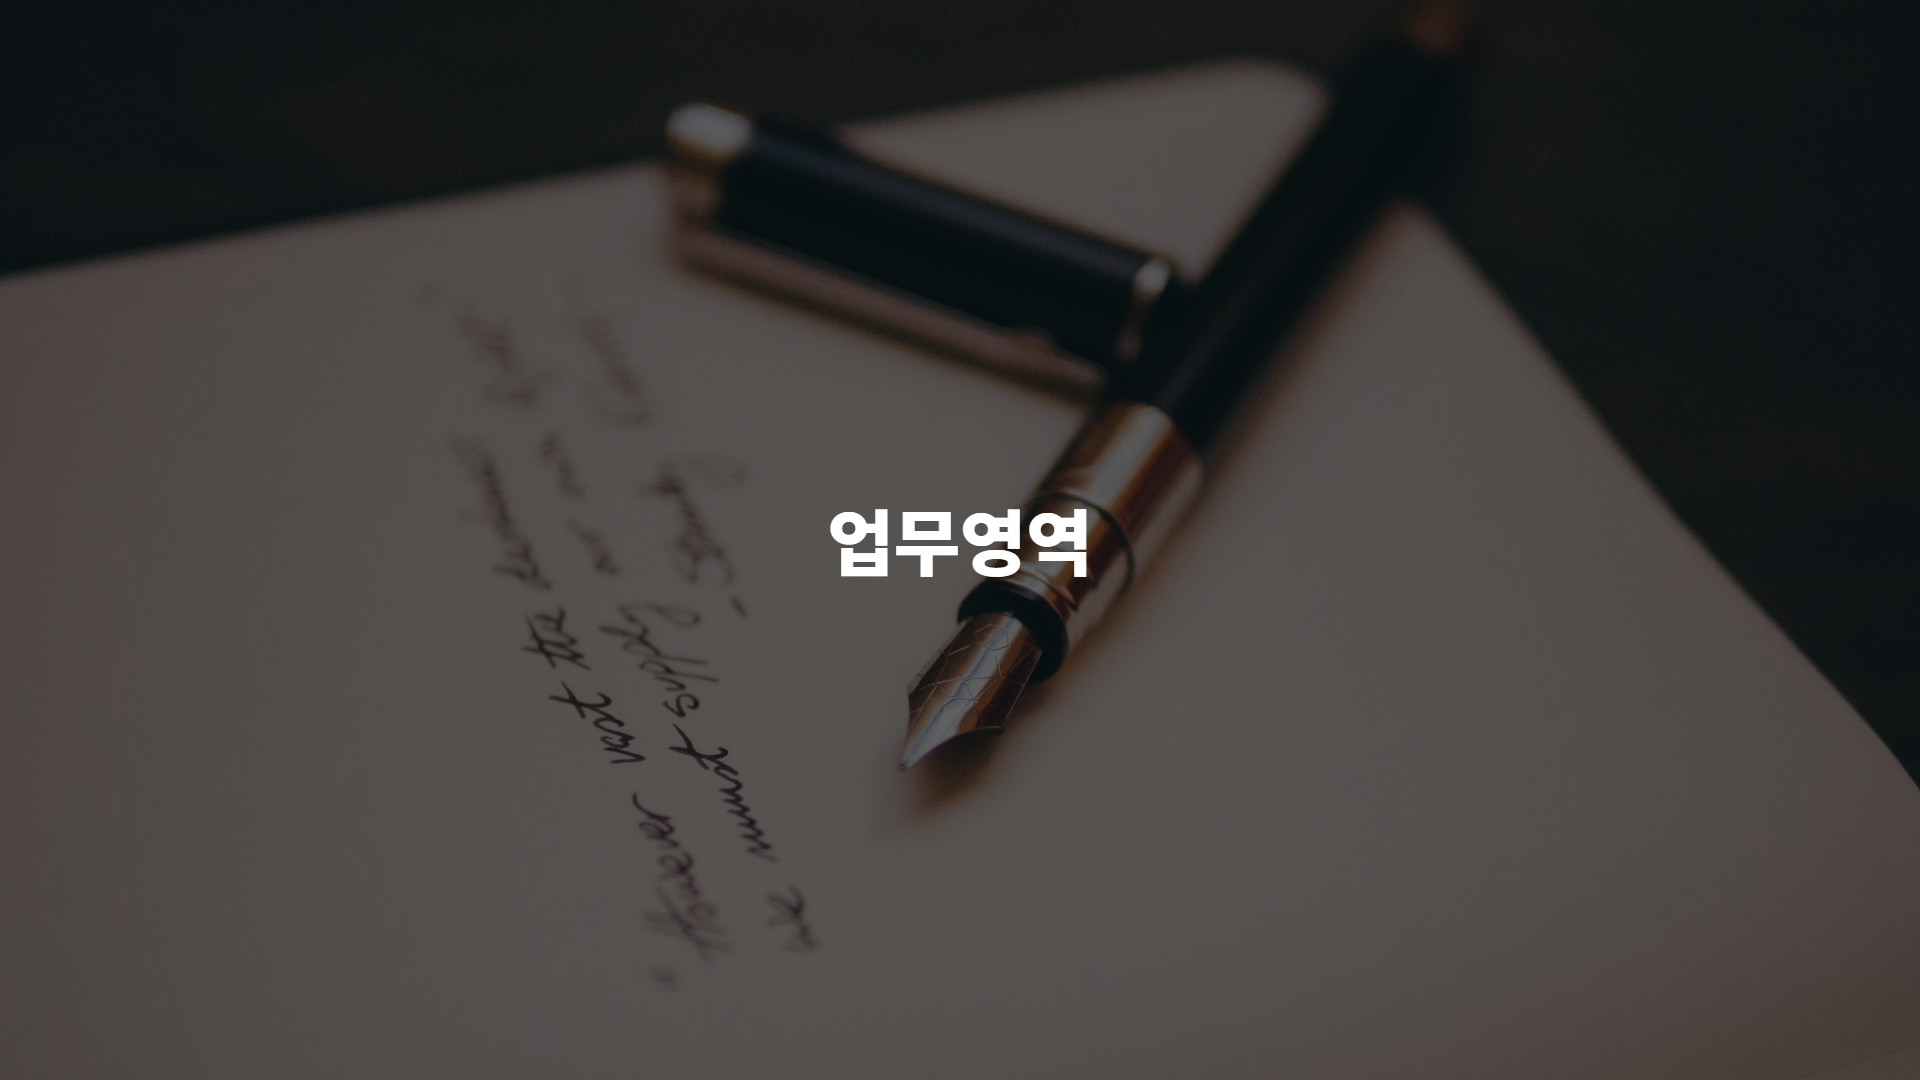 업무영역
"However vast the darkness
we must supply our own light"
- Stanley